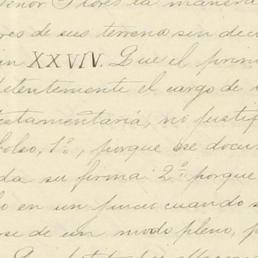 enor Flores la manera
res de sus terreno sin deci
in XXVIV. Que el prim
petentemente el cargo de
estamentaría, no justif
bolso, 1º, porque se docu
da su firma: 2º porque
o en un juicio cuando s
se de un modo pleno, p